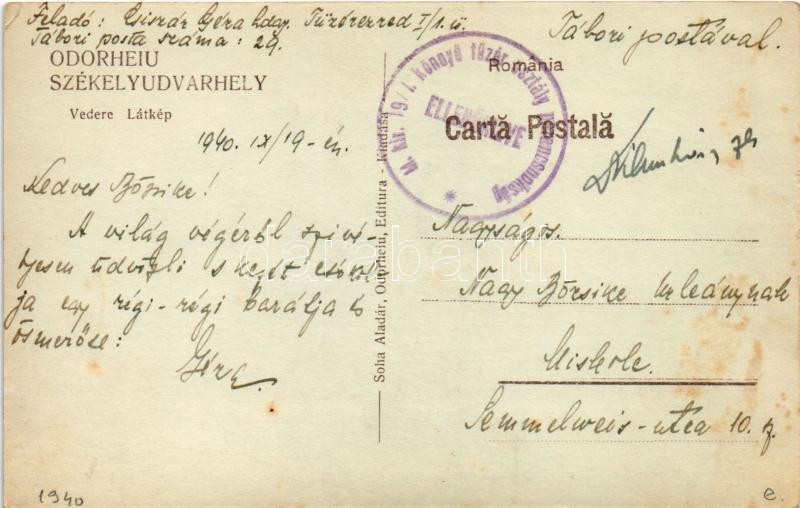 Feladó: Csiszár Géza hdgy. Tüzérezred I/1. ü.
Tábori posta száma: 29.
Tábori postával.
ODORHEIU
SZÉKELYUDVARHELY
Vedere Látkép
România
Cartă Postală
M. kir. 19/I. könnyű tüzér osztály parancsnokság
ELLENŐRIZVE
1940. IX/19-én.
Kedves Bözsike!
A világ végéről szivé-
lyesen üdvözli s kezét csókol-
ja egy régi-régi barátja és
ösmerőse:
Géza.
Soha Aladár, Odorheiu, Editura - Kiadása
Nagyságos
Nagy Bözsike urleánynak
Miskolc.
Semmelweis-utca 10. sz.
1940
e.
databanth